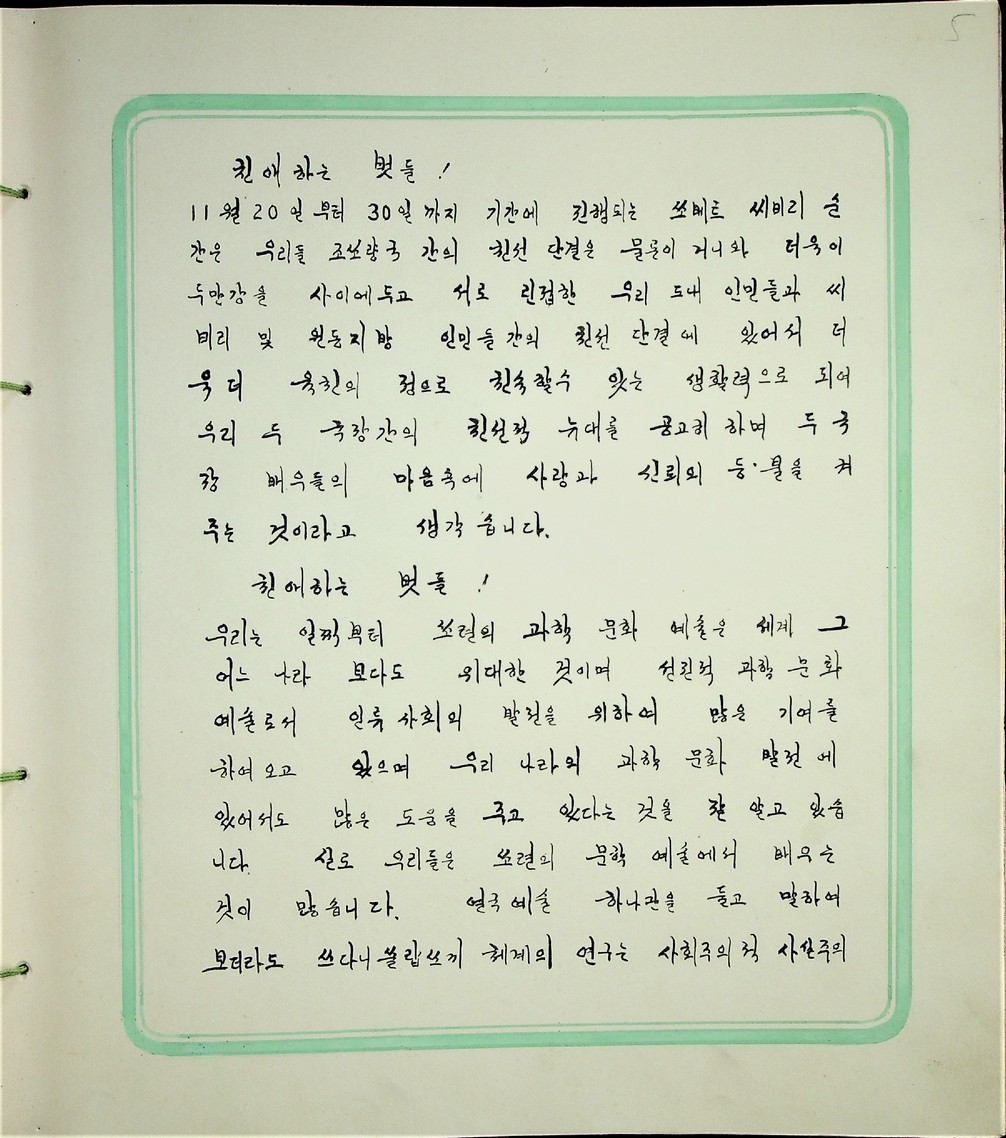 5
친애하는 벗들!
11월 20일 부터 30일 까지 기간에 진행되는 쏘베트 씨비리 순
간은 우리들 조쏘량국 간의 친선 단결은 물론이 거니와 더욱이
두만강을 사이에두고 서로 린접한 우리 도내 인민들과 씨
비리 및 원동지방 인민들간의 친선 단결에 있어서 더
욱더 육친의 정으로 친숙할수 있는 생활력으로 되여
우리 두 극장간의 친선적 뉴대를 공고히 하며 두 극
장 배우들의 마음속에 사랑과 신뢰의 등·불을 켜
주는 것이라고 생각 습니다.
친애하는 벗들!
우리는 일찍부터 쏘련의 과학 문화 예술은 세계 그
어느 나라 보다도 위대한 것이며 선진적 과학 문화
예술로서 인류사회의 발전을 위하여 많은 기여를
하여오고 있으며 우리 나라의 과학 문화 발전에
있어서도 많은 도움을 주고 있다는 것을 잘 알고 있습
니다. 실로 우리들은 쏘련의 문학 예술에서 배우는
것이 많습니다. 연극예술 하나만을 들고 말하여
보더라도 쓰다니쓸랍쓰끼 체계의 연구는 사회주의적 사실주의